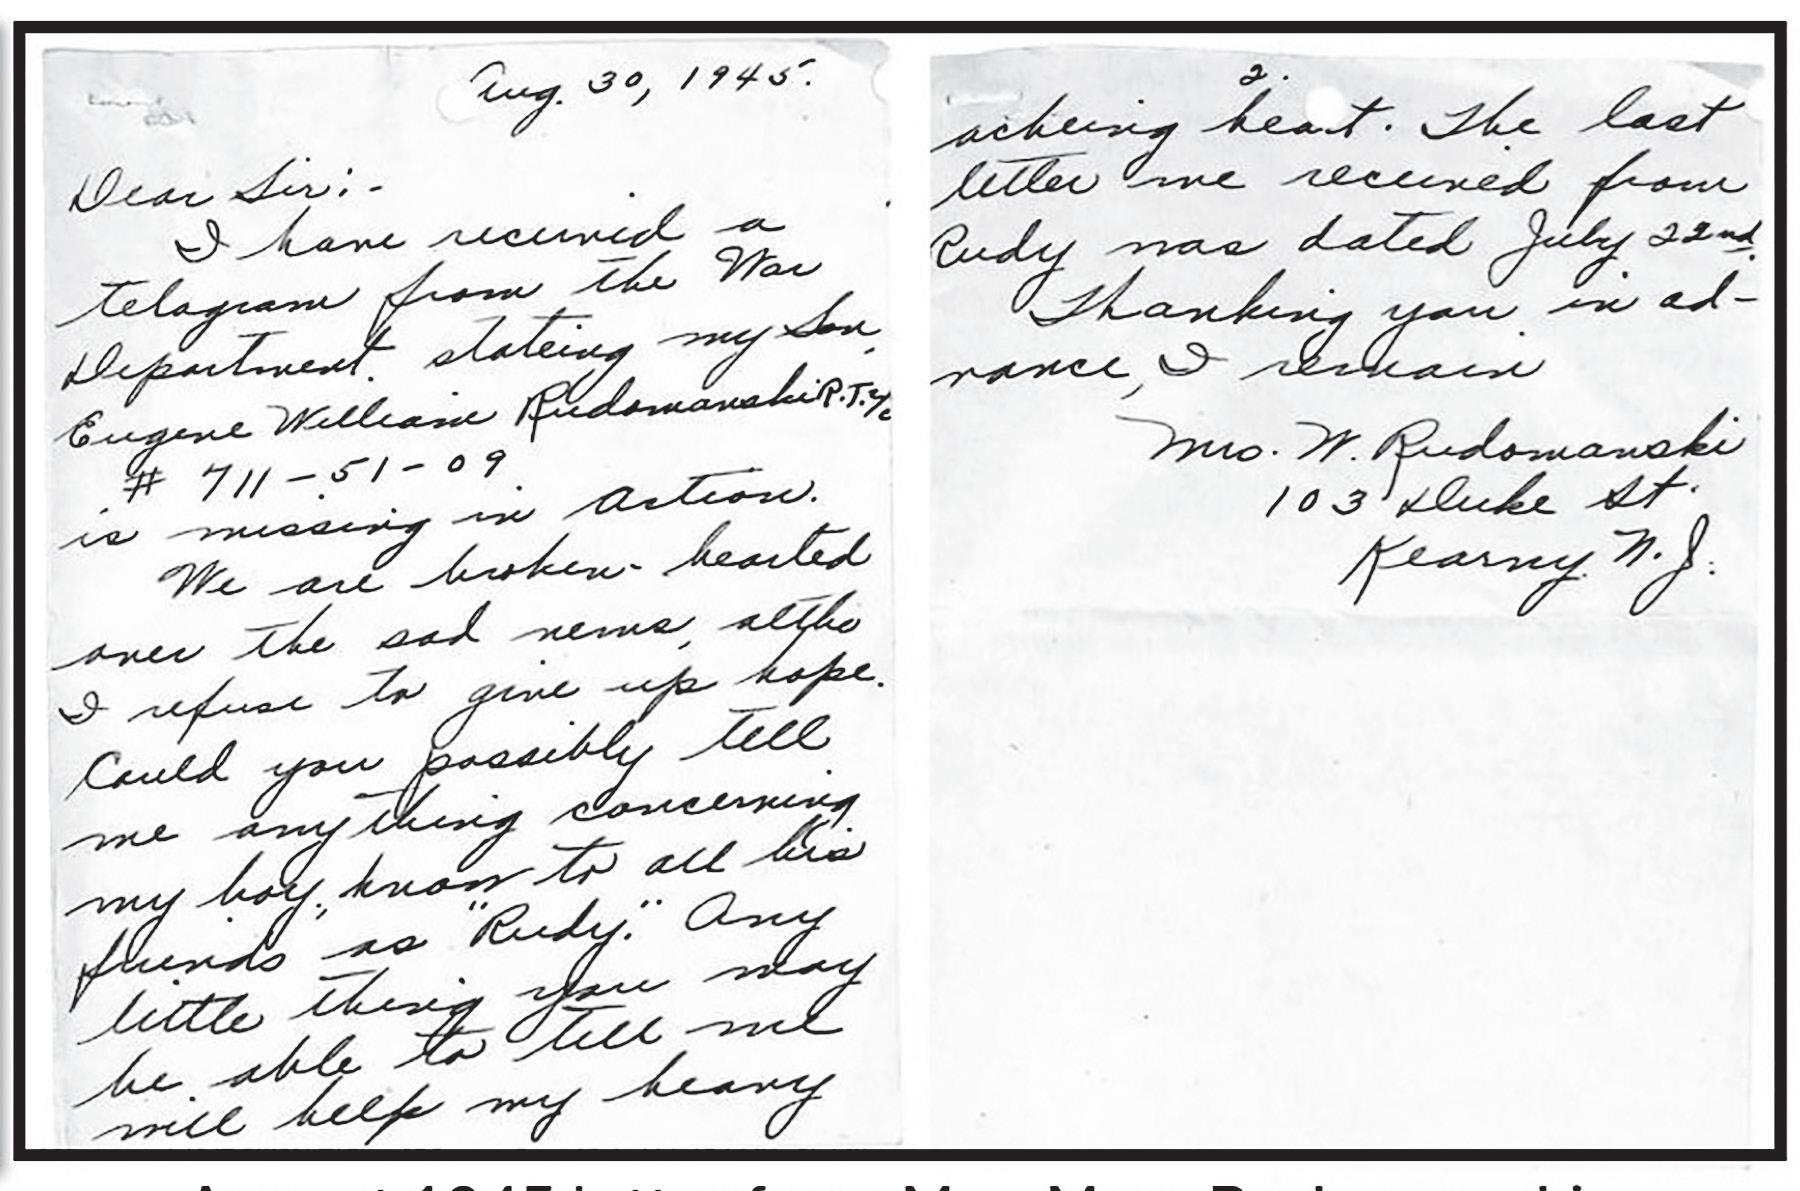 Aug. 30, 1945.
Dear Sir:-
I have received a
telagram from the War
Department. stateing my Son,
Eugene William Rudomanski R.T.3/c
# 711-51-09
is missing in action.
We are broken-hearted
over the sad news, altho
I refuse to give up hope.
Could you possibly tell
me anything concerning
my boy, known to all his
friends as "Rudy." Any
little thing you may
be able to tell me
will help my heavy
2.
acheing heart. The last
letter we received from
Rudy was dated July 22nd.
Thanking you in ad-
vance, I remain
Mrs. W. Rudomanski
103 Duke St.
Kearny N.J.